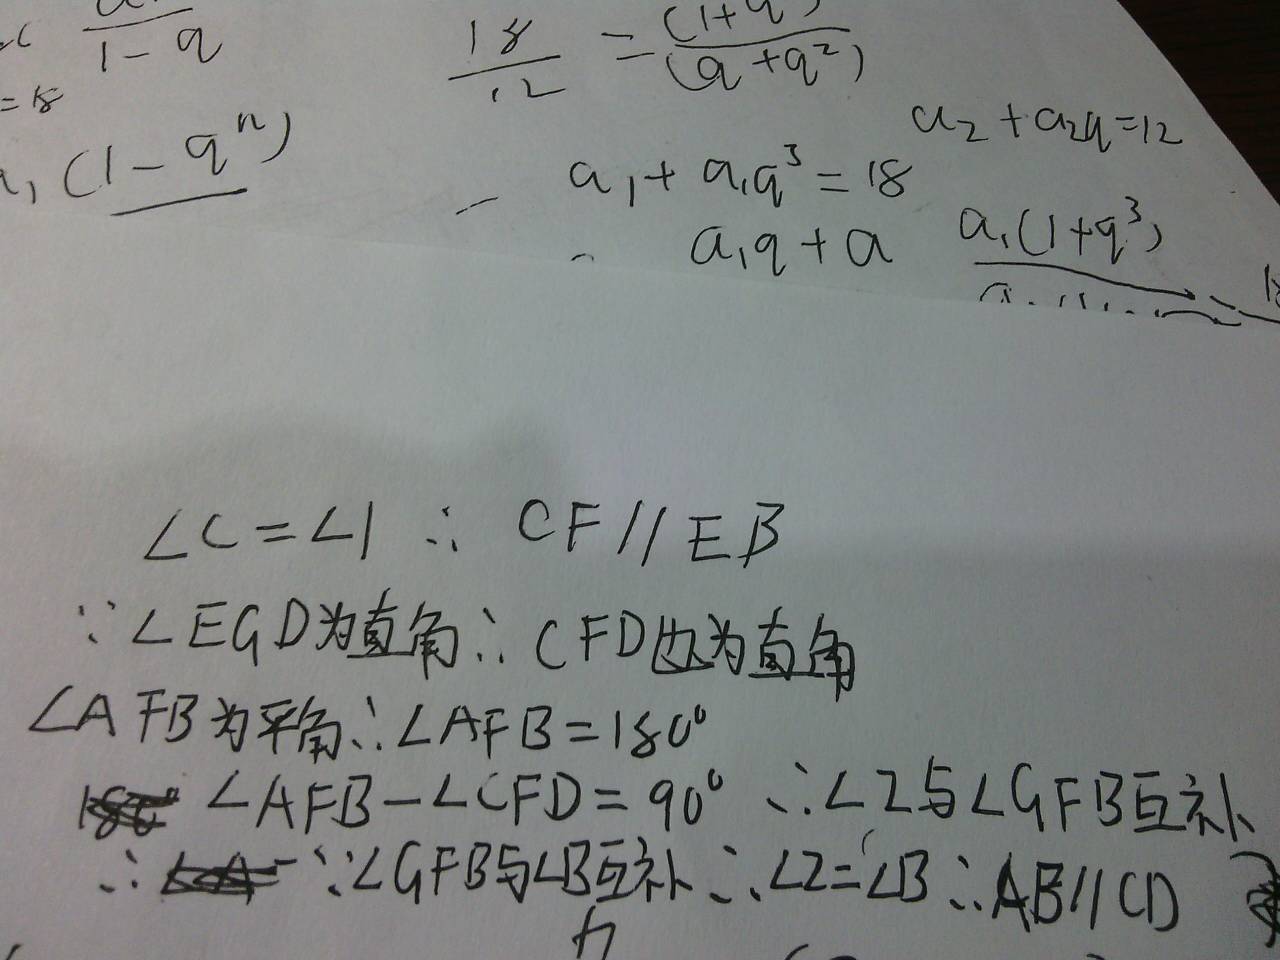 1-q
18/12 = (1+q)/(a+q²)
=18
a₂+a₂q=12
(1-qⁿ)
a₁+a₁q³=18
a₁q+a
a₁(1+q³)
∠C=∠1 ∴ CF//EB
∵∠EGD为直角∴CFD也为直角
∠AFB为平角∴∠AFB=180°
∠AFB-∠CFD=90° ∴∠2与∠GFB互补
∴ ∵∠GFB与∠B互补∴∠2=∠B∴AB//CD